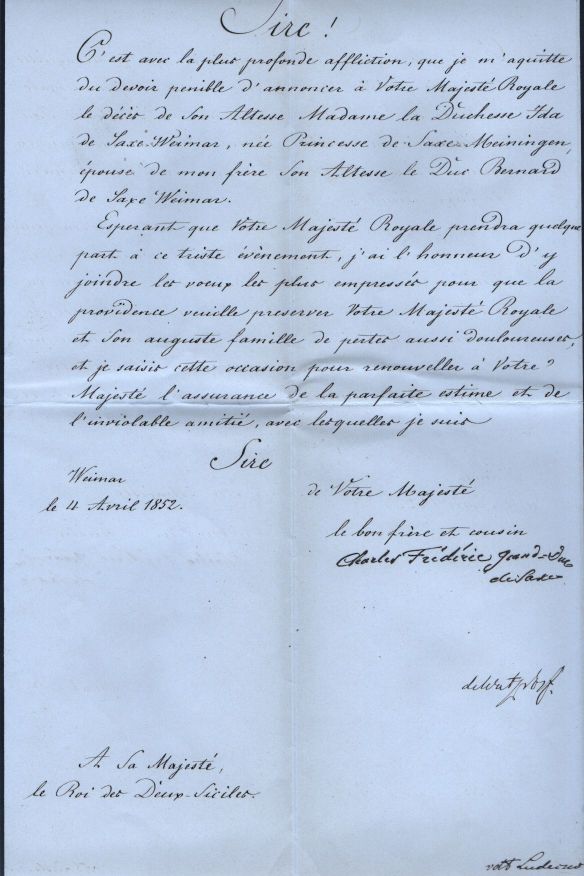 Sire !
C'est avec la plus profonde affliction, que je m'aquitte
du devoir penible d'annoncer à Votre Majesté Royale
le décès de Son Altesse Madame la Duchesse Ida
de Saxe-Weimar, née Princesse de Saxe-Meiningen,
épouse de mon frère Son Altesse le Duc Bernard
de Saxe Weimar.
Esperant que Votre Majesté Royale prendra quelque
part à ce triste évènement, j'ai l'honneur d'y
joindre les voeux les plus empressés pour que la
providence veuille preserver Votre Majesté Royale
et Son auguste famille de pertes aussi douloureuses,
et je saisis cette occasion pour renouveller à Votre
Majesté l'assurance de la parfaite estime et de
l'inviolable amitié, avec lesquelles je suis
Sire
Weimar
le 4 Avril 1852.
de Votre Majesté
le bon frère et cousin
Charles Frédéric Grand-Duc
de Saxe
de Watzdorf.
A Sa Majesté,
le Roi des Deux-Siciles.